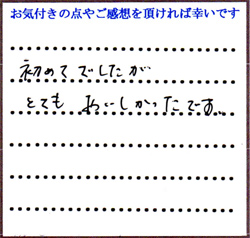 お気付きの点やご感想を頂ければ幸いです
初めてでしたが
とても おいしかったです。